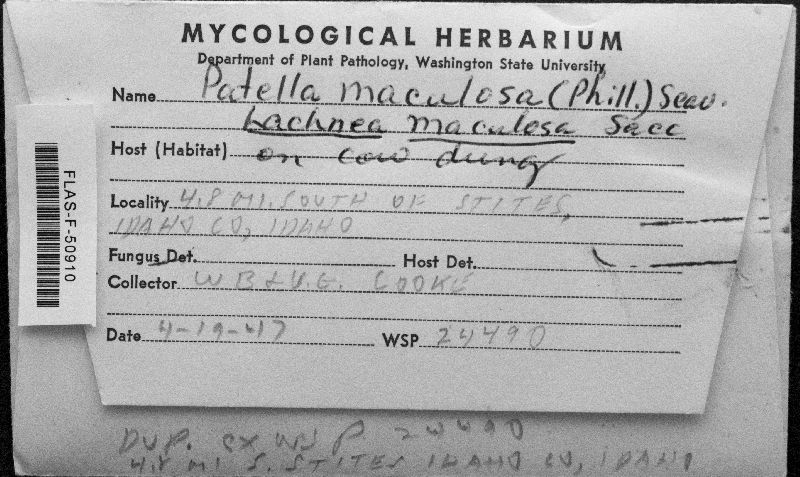 MYCOLOGICAL HERBARIUM
Department of Plant Pathology, Washington State University
Name Patella maculosa (Phill.) Seav.
Lachnea maculosa Sacc
Host (Habitat) on cow dung
Locality 4.8 MI. SOUTH OF STITES,
IDAHO CO, IDAHO
Fungus Det.
Host Det.
Collector W B & V.G. COOKE
Date 4-19-47
WSP 24490
FLAS-F-50910
DUP. ex WSP 24490
4.8 MI S. STITES IDAHO CO, IDAHO